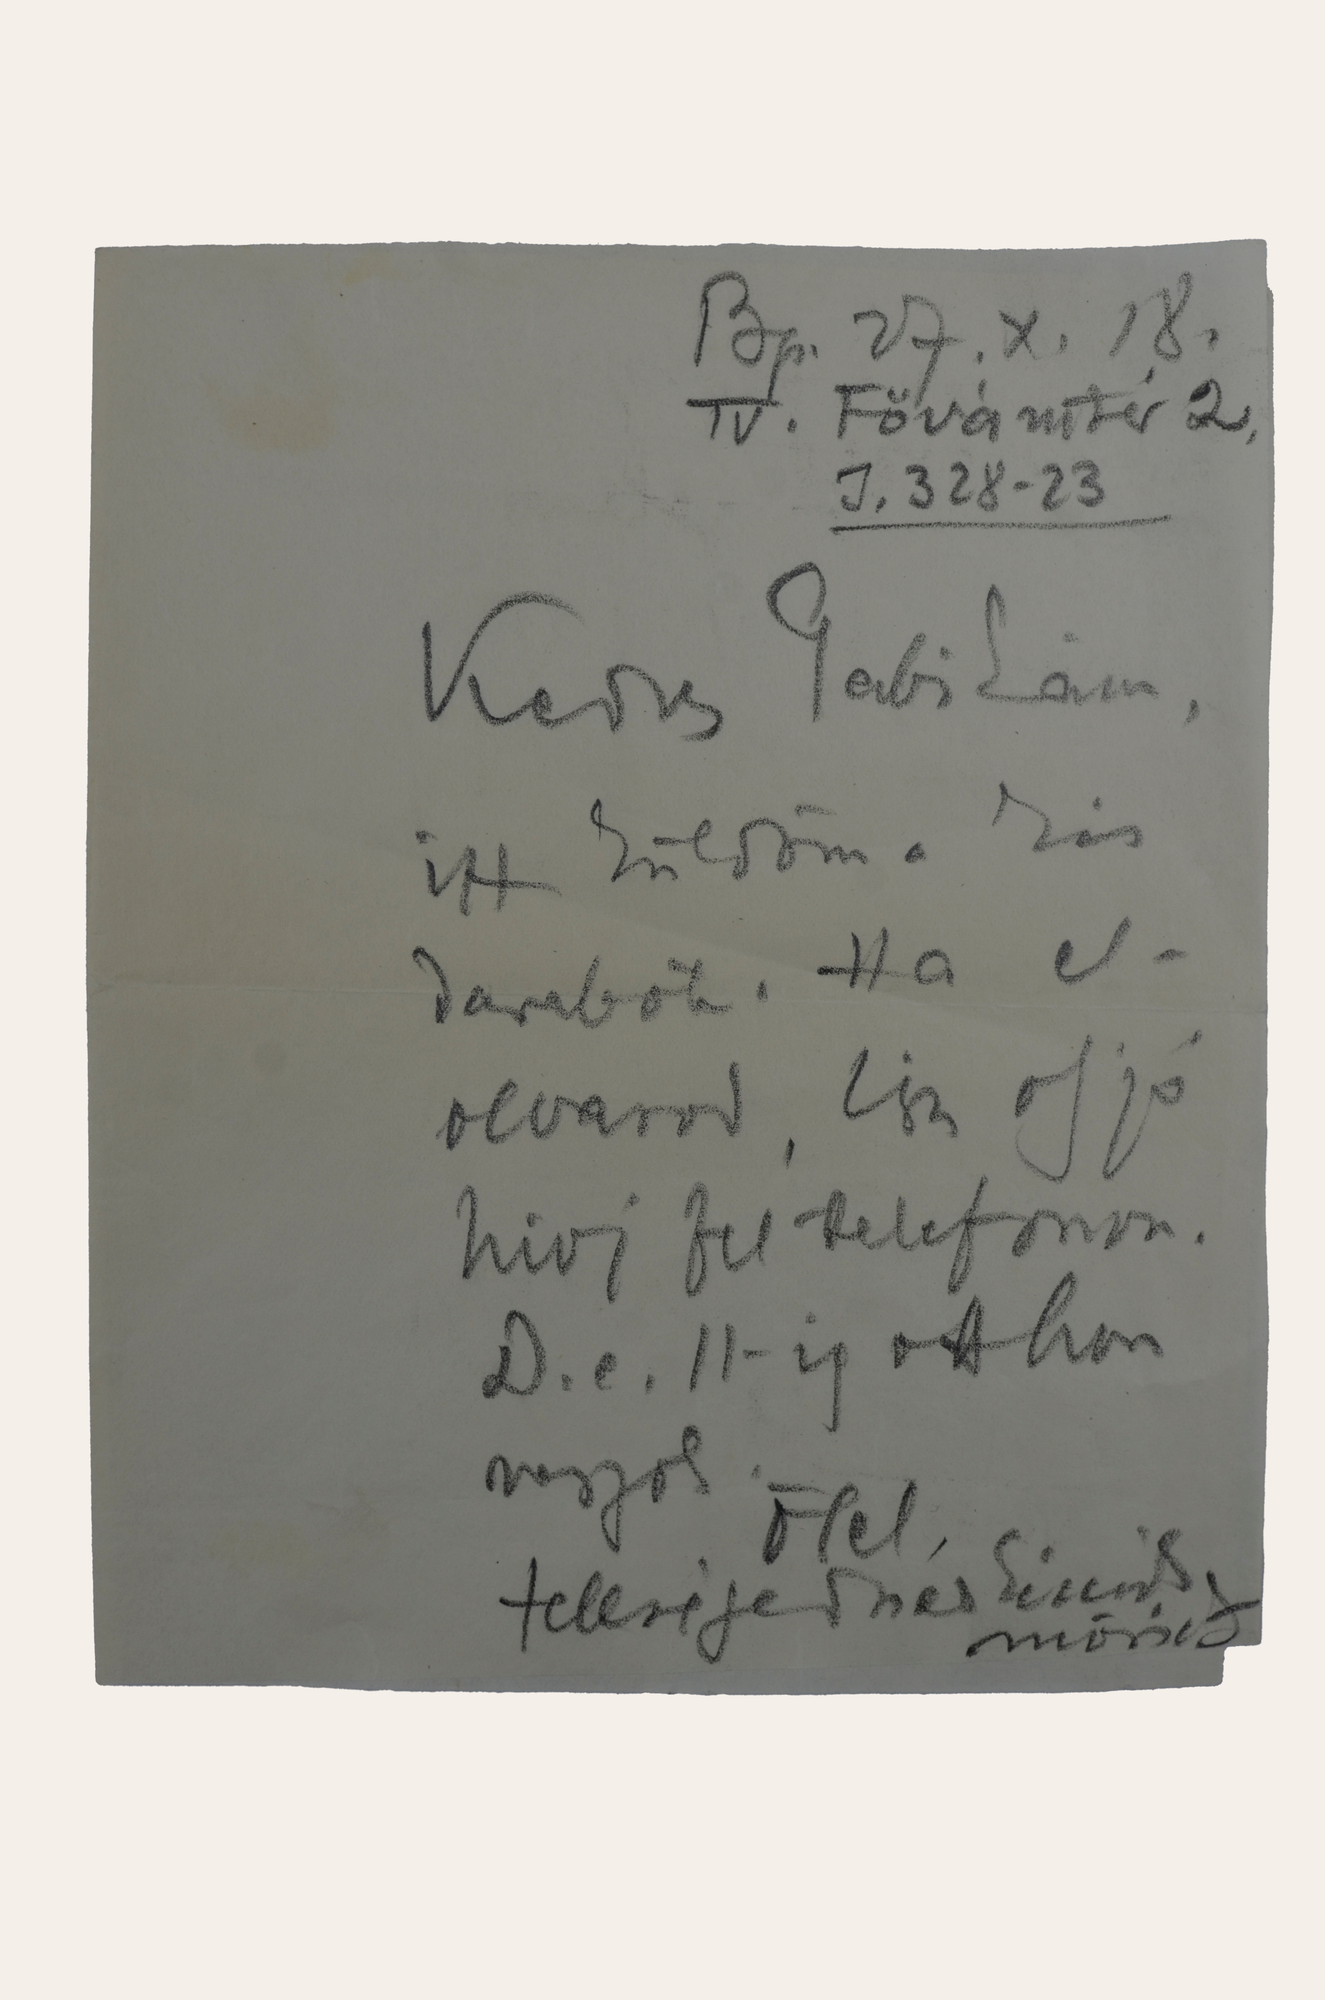 Bp. 27. X. 18.
IV. Fővámtér 2.
J. 328-23
Kedves Gabikám,
itt küldöm a kis
darabot. Ha el-
olvasod, légy oly jó
hivj fel telefonon.
D.e. 11-ig otthon
vagyok.
Ölel,
móricz